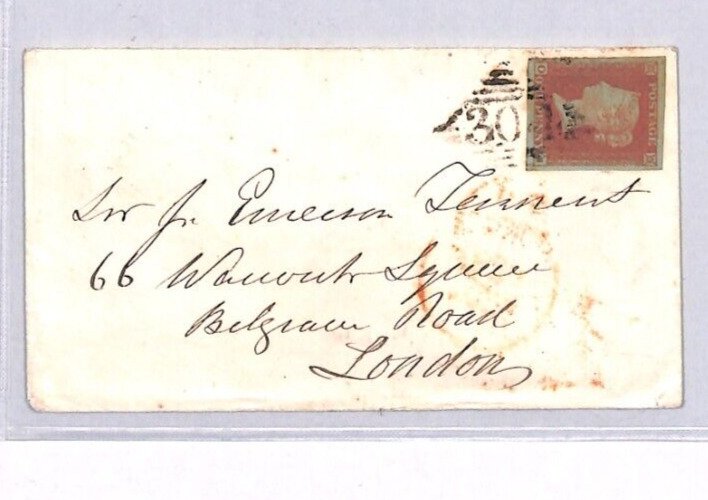 30
POSTAGE
ONE PENNY
Sir J. Emerson Tennent
66 Warwick Square
Belgrave Road
London